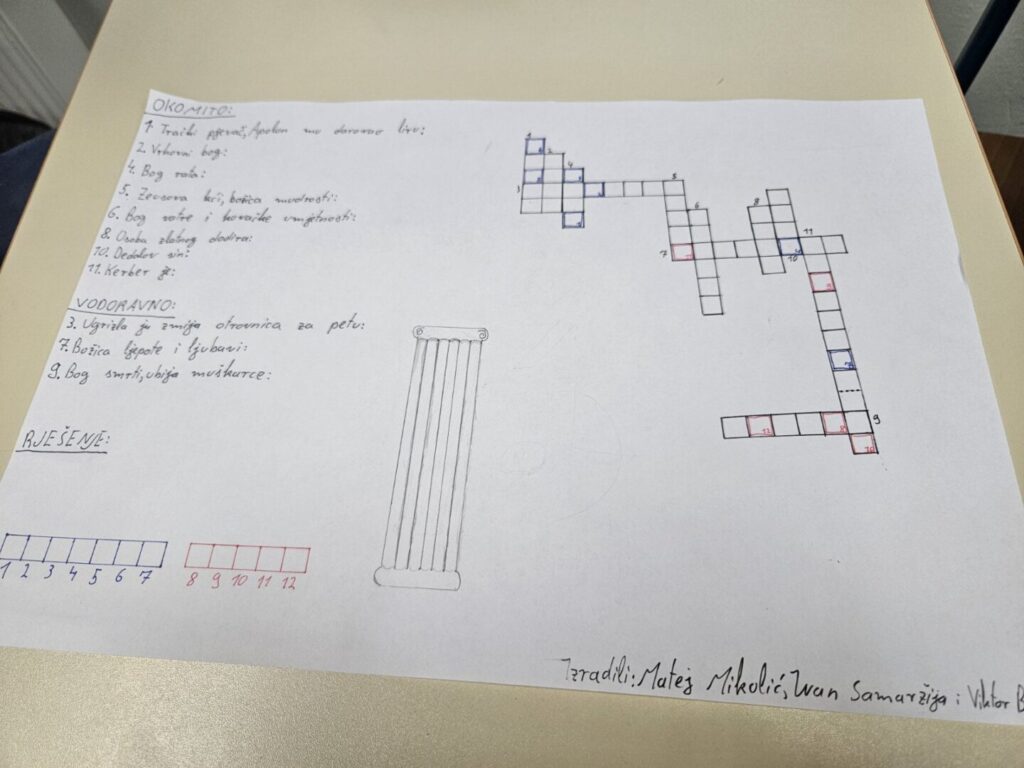 OKOMITO:
1. Trački pjevač, Apolon mu darovao liru:
2. Vrhovni bog:
4. Bog rata:
5. Zeusova kći, božica mudrosti:
6. Bog vatre i kovačke umjetnosti:
8. Osoba zlatnog dodira:
10. Dedalov sin:
11. Kerber je:
VODORAVNO:
3. Ugrizla ju zmija otrovnica za petu:
7. Božica ljepote i ljubavi:
9. Bog smrti, ubija muškarce:
RJEŠENJE:
1 2 3 4 5 6 7 8 9 10 11 12
Izradili: Matej Mikolić, Ivan Samaržija i Viktor B